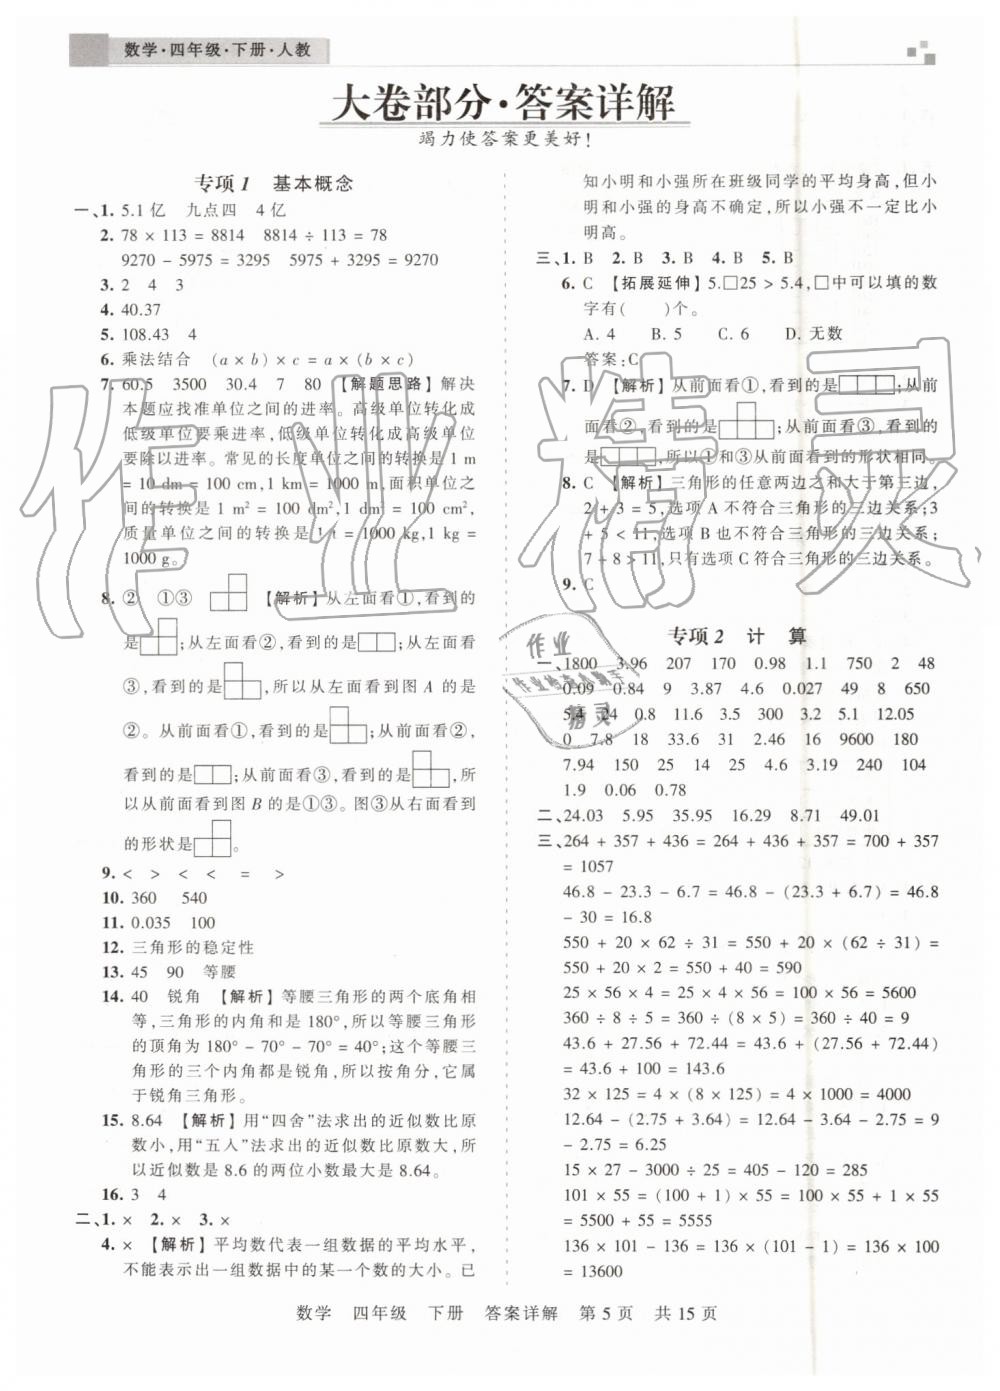 数学·四年级·下册·人教
大卷部分·答案详解
竭力使答案更美好!
专项1 基本概念
一、1. 5.1亿 九点四 4亿
2. 78 × 113 = 8814 8814 ÷ 113 = 78
9270 - 5975 = 3295 5975 + 3295 = 9270
3. 2 4 3
4. 40.37
5. 108.43 4
6. 乘法结合 (a × b) × c = a × (b × c)
7. 60.5 3500 30.4 7 80 【解题思路】解决
本题应找准单位之间的进率。高级单位转化成
低级单位要乘进率,低级单位转化成高级单位
要除以进率。常见的长度单位之间的转换是 1 m
= 10 dm = 100 cm,1 km = 1000 m,面积单位之
间的转换是 1 m² = 100 dm²,1 dm² = 100 cm²,
质量单位之间的转换是 1 t = 1000 kg,1 kg =
1000 g。
8. ② ①③ 【解析】从左面看①,看到的
是;从左面看②,看到的是;从左面看
③,看到的是,所以从左面看到图 A 的是
②。从前面看①,看到的是;从前面看②,
看到的是;从前面看③,看到的是,所
以从前面看到图 B 的是①③。图③从右面看到
的形状是。
9. < > < < = >
10. 360 540
11. 0.035 100
12. 三角形的稳定性
13. 45 90 等腰
14. 40 锐角 【解析】等腰三角形的两个底角相
等,三角形的内角和是 180°,所以等腰三角形
的顶角为 180° - 70° - 70° = 40°;这个等腰三
角形的三个内角都是锐角,所以按角分,它属
于锐角三角形。
15. 8.64 【解析】用“四舍”法求出的近似数比原
数小,用“五入”法求出的近似数比原数大,所
以近似数是 8.6 的两位小数最大是 8.64。
16. 3 4
二、1. × 2. × 3. ×
4. × 【解析】平均数代表一组数据的平均水平,
不能表示出一组数据中的某一个数的大小。已
知小明和小强所在班级同学的平均身高,但小
明和小强的身高不确定,所以小强不一定比小
明高。
三、1. B 2. B 3. B 4. B 5. B
6. C 【拓展延伸】5.□25 > 5.4,□中可以填的数
字有( )个。
A. 4 B. 5 C. 6 D. 无数
答案:C
7. D 【解析】从前面看①,看到的是;从前
面看②,看到的是;从前面看③,看到的
是,所以①和③从前面看到的形状相同。
8. C 【解析】三角形的任意两边之和大于第三边,
2 + 3 = 5,选项 A 不符合三角形的三边关系;3
+ 5 < 11,选项 B 也不符合三角形的三边关系;
7 + 8 > 11,只有选项 C 符合三角形的三边关系。
9. C
专项2 计 算
一、1800 3.96 207 170 0.98 1.1 750 2 48
0.09 0.84 9 3.87 4.6 0.027 49 8 650
5.4 24 0.8 11.6 3.5 300 3.2 5.1 12.05
0 7.8 18 33.6 31 2.46 16 9600 180
7.94 150 25 14 25 4.6 3.19 240 104
1.9 0.06 0.78
二、24.03 5.95 35.95 16.29 8.71 49.01
三、264 + 357 + 436 = 264 + 436 + 357 = 700 + 357
= 1057
46.8 - 23.3 - 6.7 = 46.8 - (23.3 + 6.7) = 46.8
- 30 = 16.8
550 + 20 × 62 ÷ 31 = 550 + 20 × (62 ÷ 31) =
550 + 20 × 2 = 550 + 40 = 590
25 × 56 × 4 = 25 × 4 × 56 = 100 × 56 = 5600
360 ÷ 8 ÷ 5 = 360 ÷ (8 × 5) = 360 ÷ 40 = 9
43.6 + 27.56 + 72.44 = 43.6 + (27.56 + 72.44)
= 43.6 + 100 = 143.6
32 × 125 = 4 × (8 × 125) = 4 × 1000 = 4000
12.64 - (2.75 + 3.64) = 12.64 - 3.64 - 2.75 = 9
- 2.75 = 6.25
15 × 27 - 3000 ÷ 25 = 405 - 120 = 285
101 × 55 = (100 + 1) × 55 = 100 × 55 + 1 × 55
= 5500 + 55 = 5555
136 × 101 - 136 = 136 × (101 - 1) = 136 × 100
= 13600
数学 四年级 下册 答案详解 第 5 页 共 15 页
作业精灵
作业
精灵